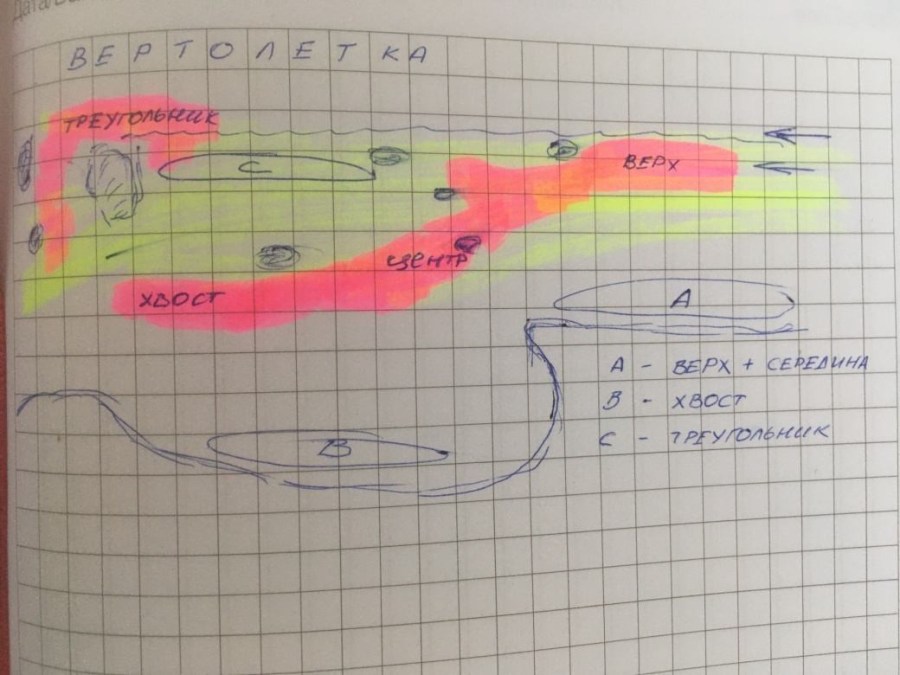 Дата/
ВЕРТОЛЕТКА
ТРЕУГОЛЬНИК
С
ВЕРХ
ЦЕНТР
ХВОСТ
А
А - ВЕРХ + СЕРЕДИНА
В - ХВОСТ
С - ТРЕУГОЛЬНИК
В